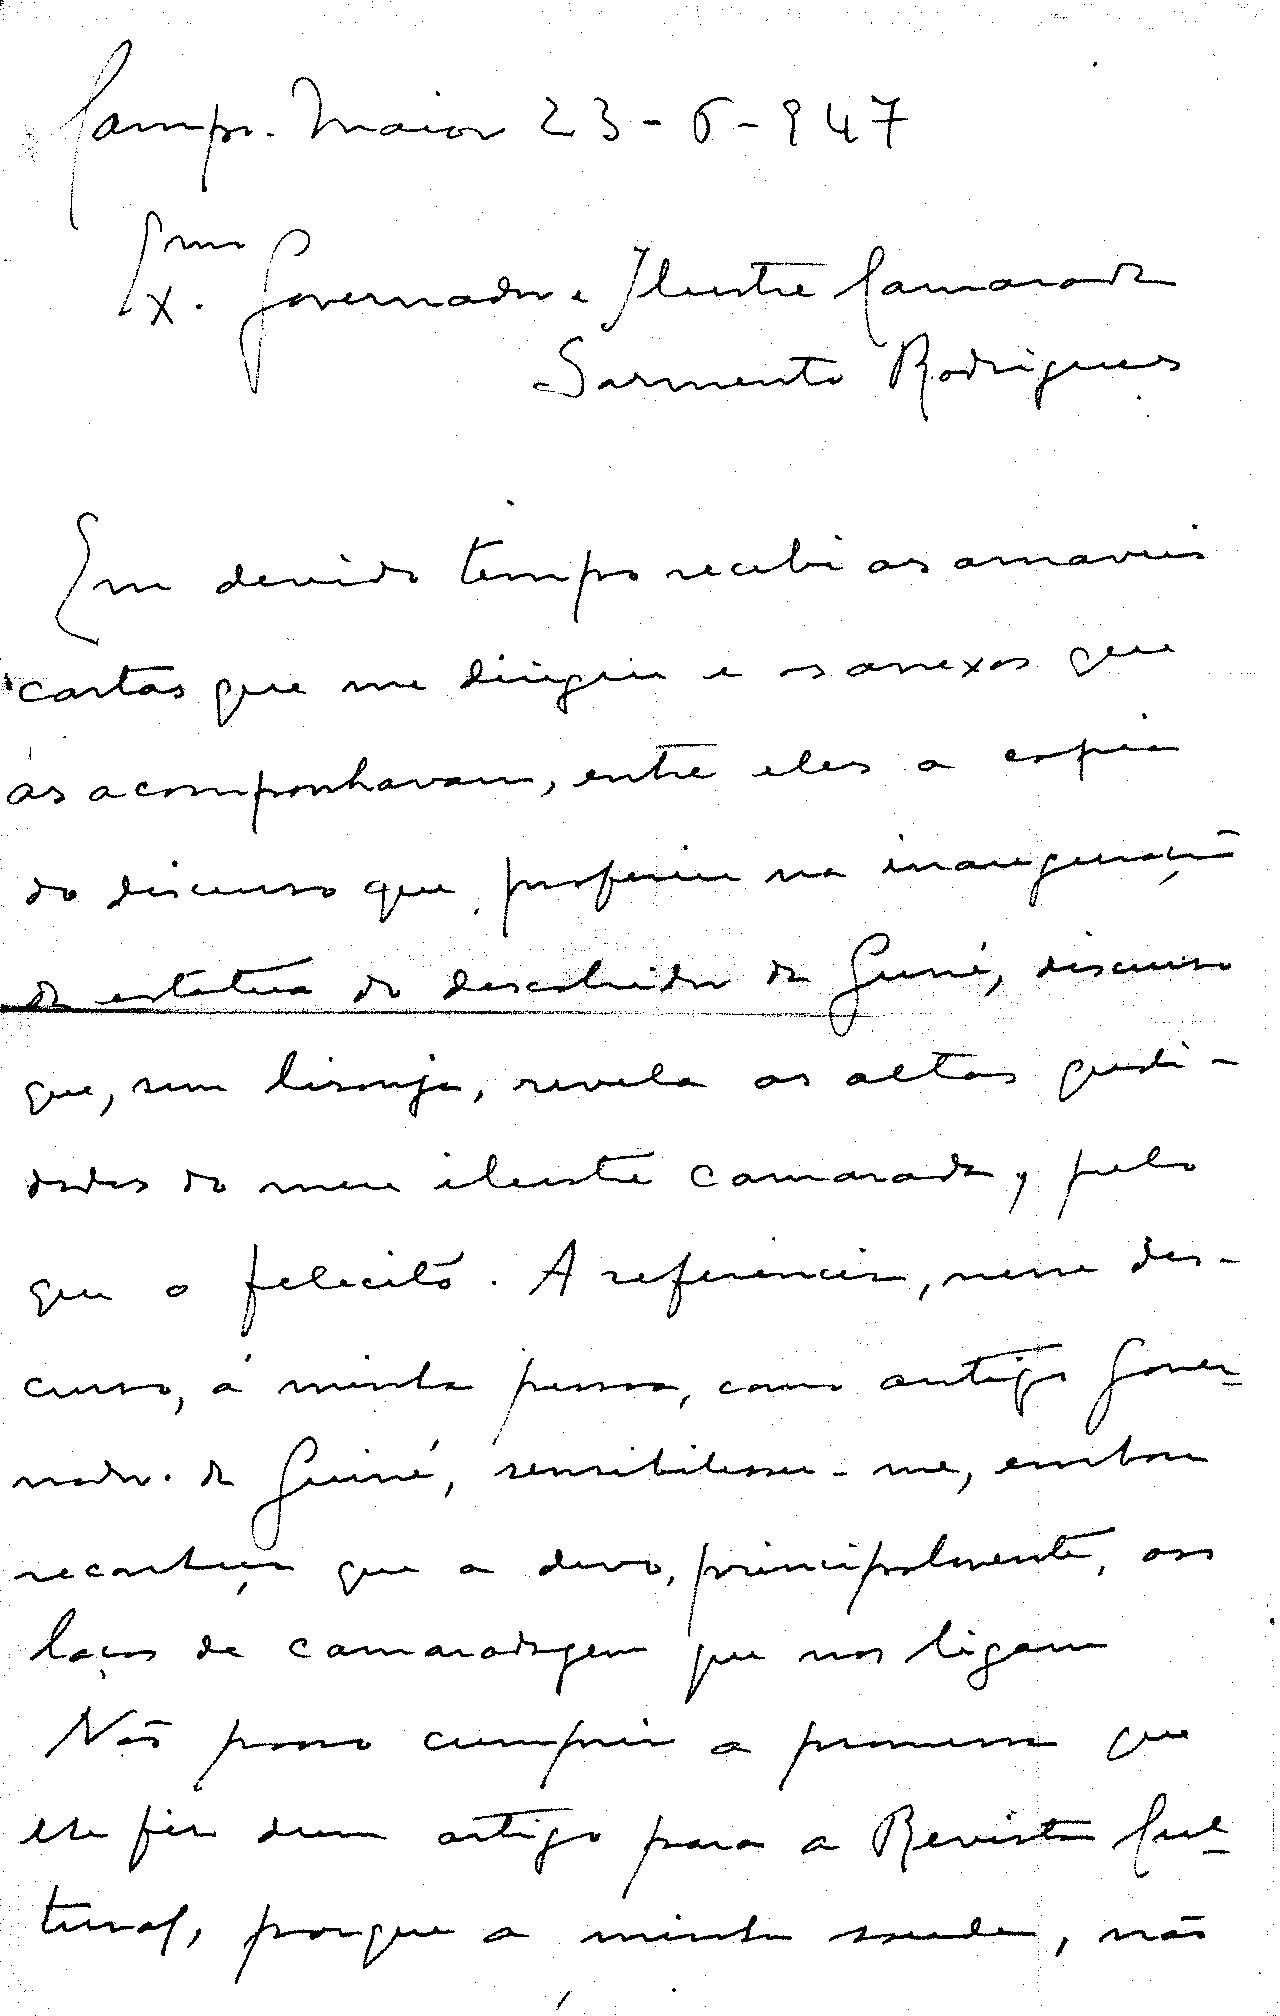 Campo Maior 23-6-947
Exmo. Governador e Ilustre Camarada
Sarmento Rodrigues
Em devido tempo recebi as amaveis
cartas que me dirigiu e os anexos que
as acompanhavam, entre eles a copia
do discurso que proferiu na inauguração
da estatua do descobridor da Guiné, discurso
que, sem lisonja, revela as altas quali-
dades do meu ilustre camarada, pelo
que o felicito. A referencia, nesse dis-
curso, á minha pessoa, como antigo Gover-
nador da Guiné, sensibilisou-me, embora
reconheça que a devo, principalmente, aos
laços de camaradagem que nos ligam
Não posso cumprir a promessa que
lhe fiz dum artigo para a Revista Cul-
tural, porque a minha saude, não